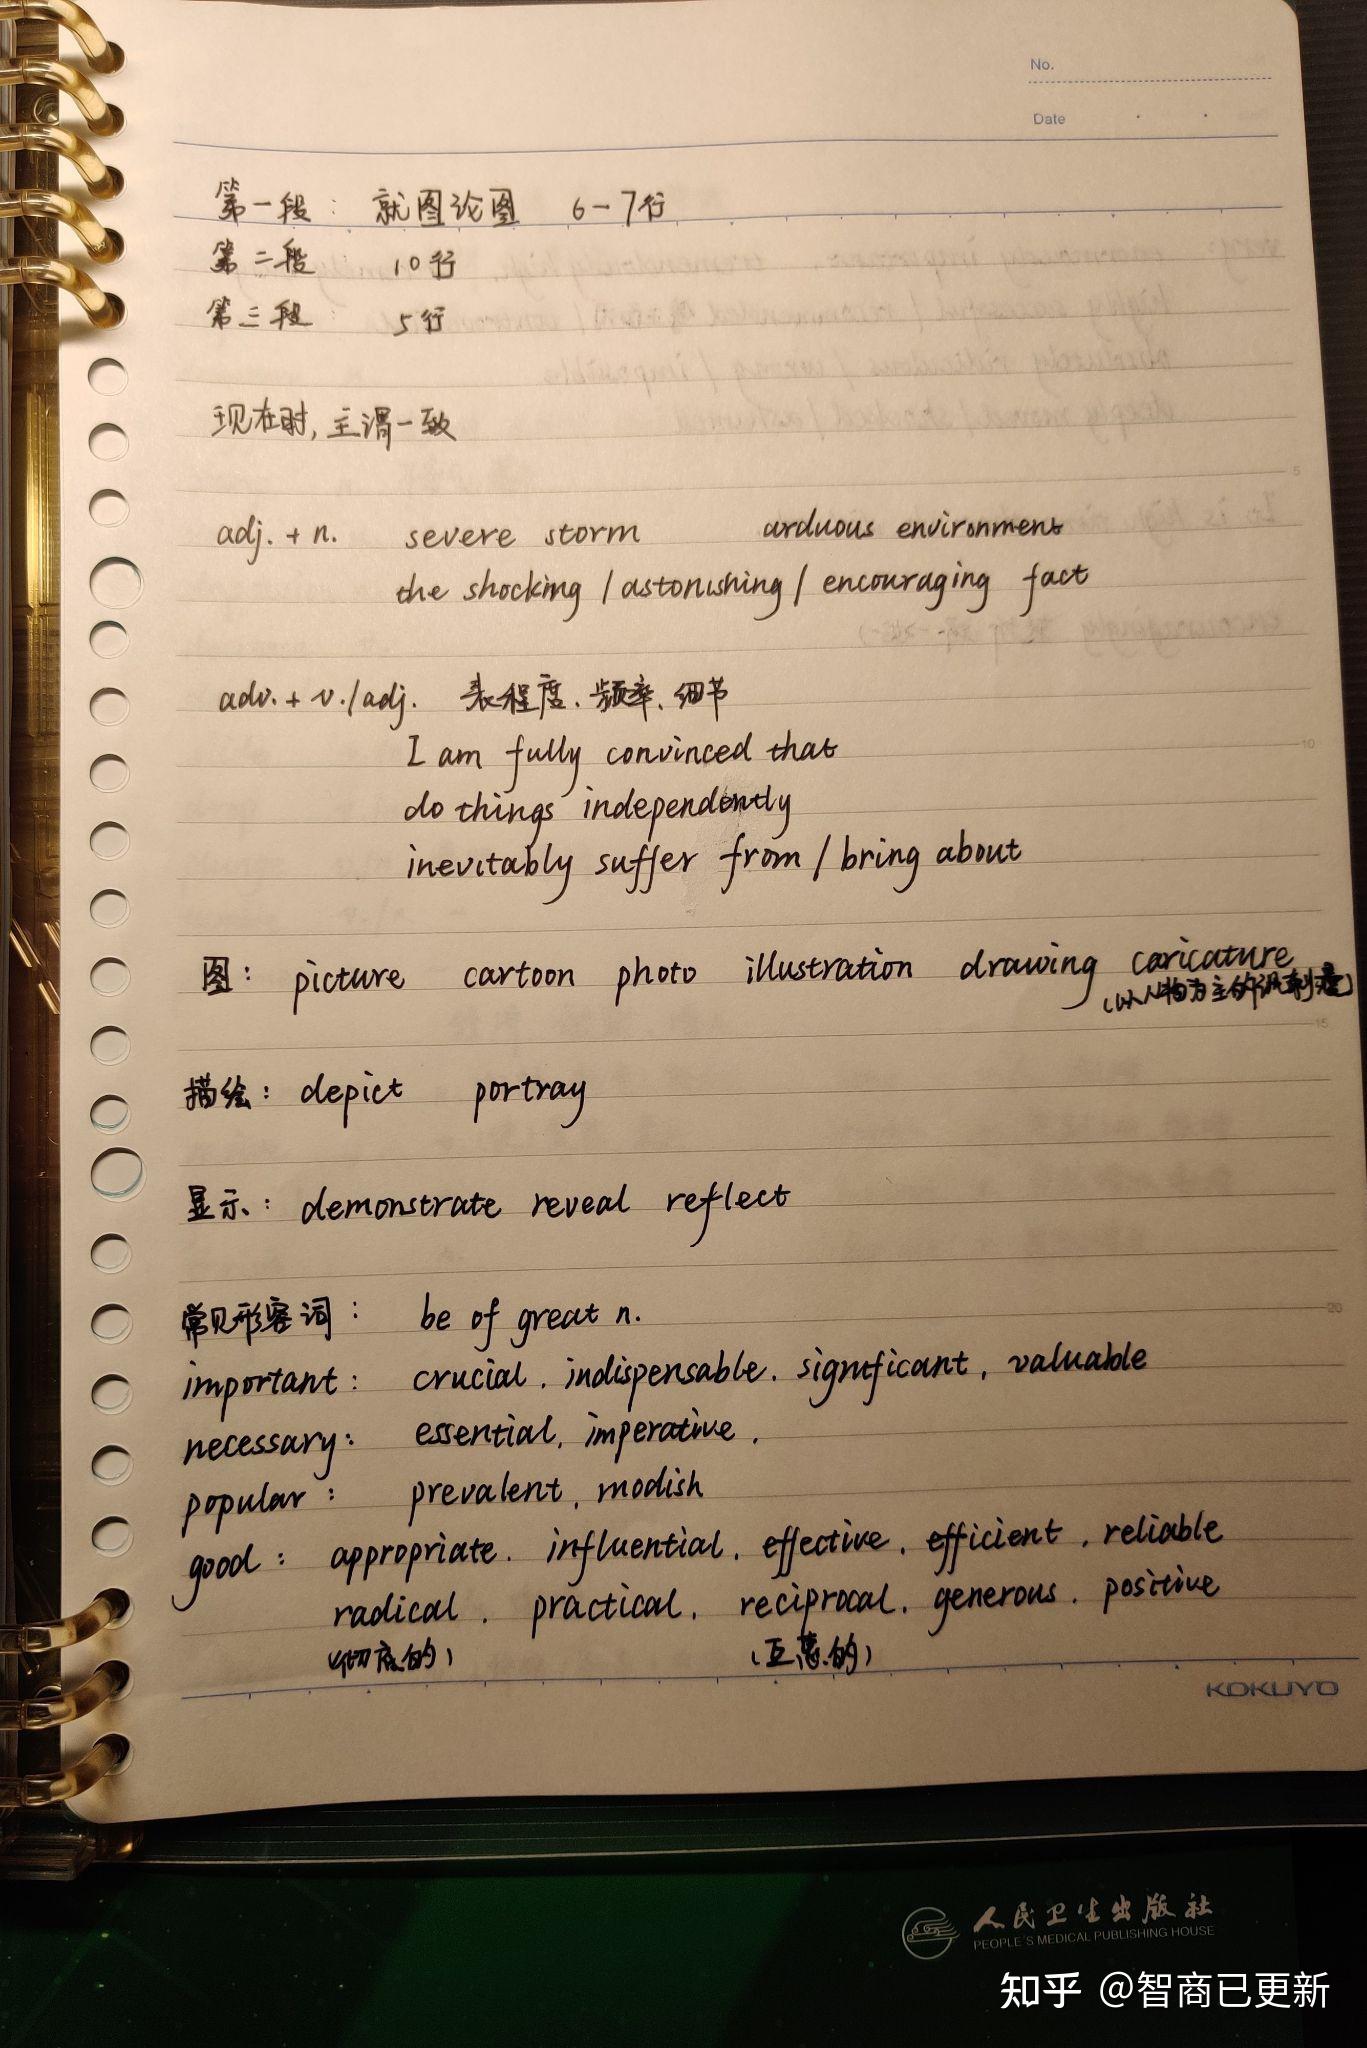 No.
Date
第一段: 就图论图 6-7行
第二段 10行
第三段: 5行
现在时, 主谓一致
adj. + n. severe storm arduous environment
the shocking / astonishing / encouraging fact
adv. + v. / adj. 表程度、频率、细节
I am fully convinced that
do things independently
inevitably suffer from / bring about
图: picture cartoon photo illustration drawing caricature
(以人物为主的讽刺画)
描绘: depict portray
显示: demonstrate reveal reflect
常见形容词: be of great n.
important: crucial. indispensable. significant, valuable
necessary: essential, imperative.
popular: prevalent, modish
good: appropriate. influential. effective. efficient. reliable
radical. practical. reciprocal. generous. positive
(彻底的) (互惠的)
5
10
15
20
KOKUYO
人民卫生出版社
PEOPLE'S MEDICAL PUBLISHING HOUSE
知乎 @智商已更新